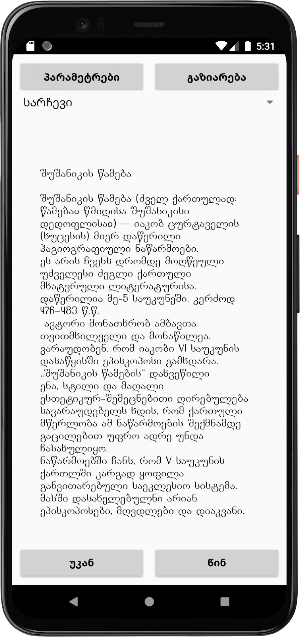 5:31
პარამეტრები
გაზიარება
სარჩევი
შუშანიკის წამება
შუშანიკის წამება (ძველ ქართულად:
წამებაჲ წმიდისა შუშანიკისი
დედოფლისაჲ) — იაკობ ცურტაველის
(ხუცესის) მიერ დაწერილი
ჰაგიოგრაფიული ნაწარმოები.
ეს არის ჩვენს დრომდე მოღწეული
უძველესი ძეგლი ქართული
მხატვრული ლიტერატურისა.
დაწერილია მე-5 საუკუნეში. კერძოდ
476–483 წ.წ.
ავტორი მონათხრობ ამბავთა
თვითმხილველი და მონაწილეა.
ვარაუდობენ, რომ იაკობი VI საუკუნის
დასაწყისში ეპისკოპოსი გამხდარა.
„შუშანიკის წამების“ დახვეწილი
ენა, სტილი და მაღალი
ესთეტიკურ-შემეცნებითი ღირებულება
სავარაუდებელს ხდის, რომ ქართული
მწერლობა ამ ნაწარმოების შექმნამდე
გაცილებით უფრო ადრე უნდა
ჩასახულიყო.
ნაწარმოებში ჩანს, რომ V საუკუნის
ქართლში კარგად ყოფილა
განვითარებული საეკლესიო სისტემა.
მასში დასახელებულნი არიან
ეპისკოპოსები, მღვდლები და დიაკვანი.
უკან
წინ